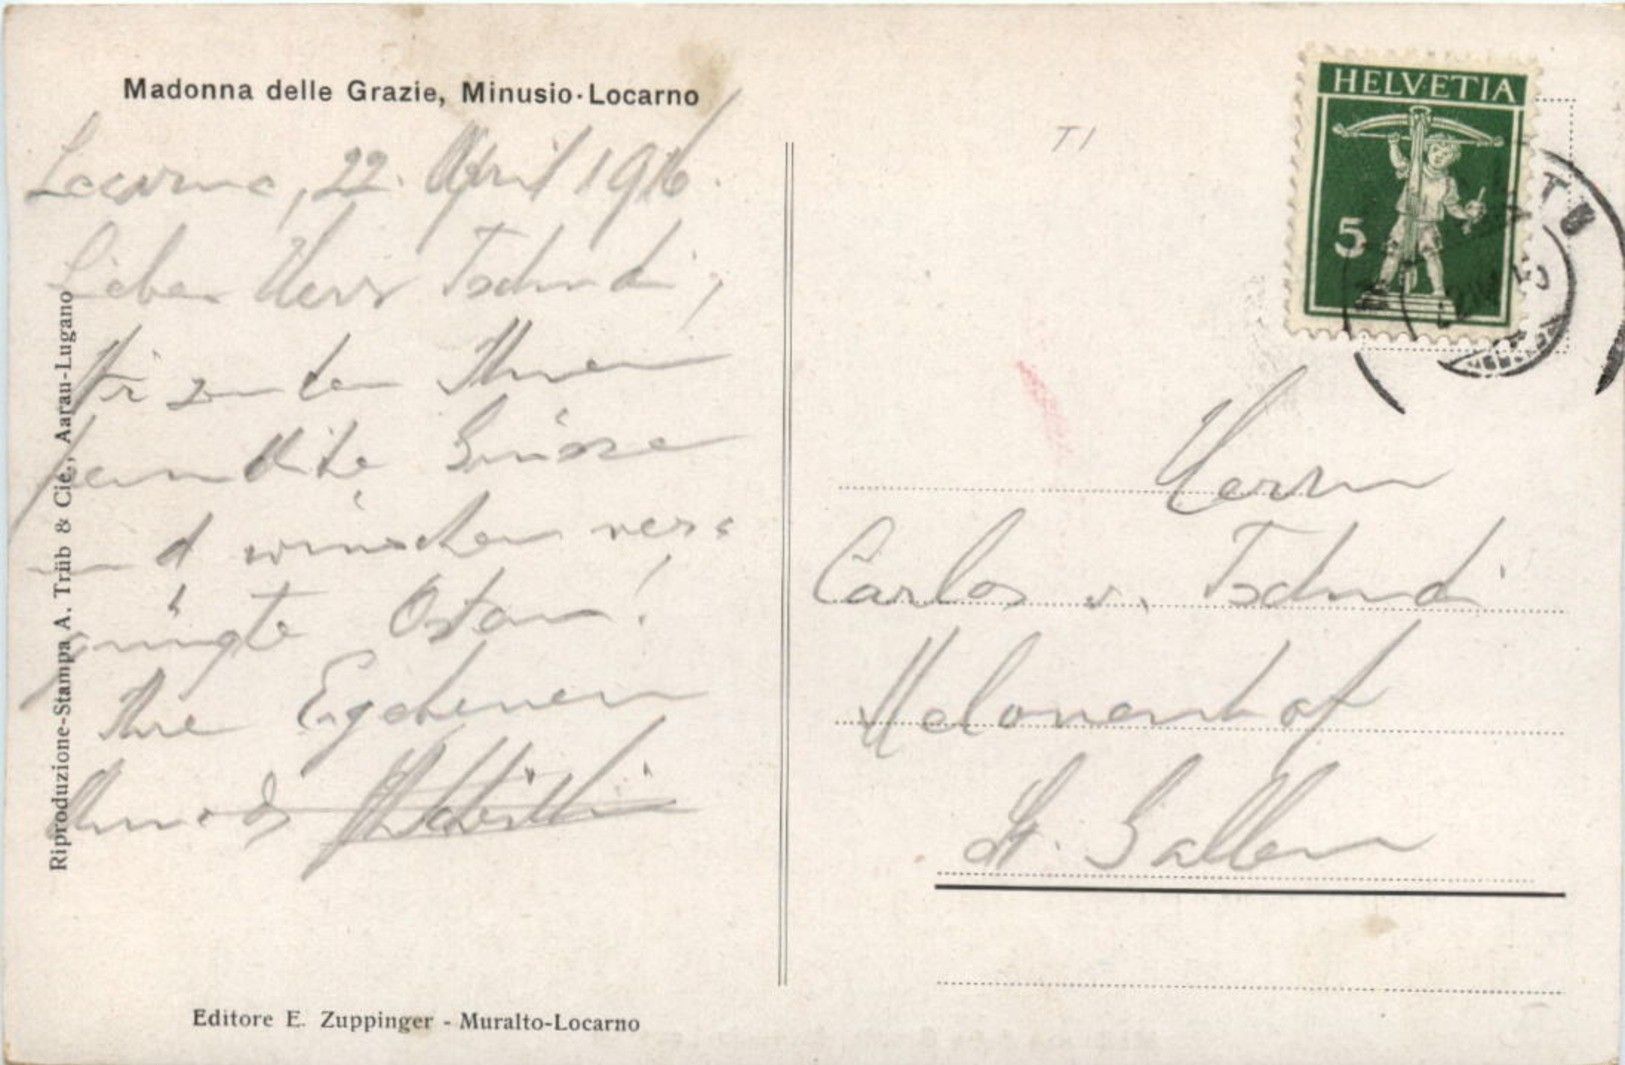 Madonna delle Grazie, Minusio-Locarno
Locarno, 22. April 1916.
Lieber Herr Tschudi,
Wir senden Ihnen
herzliche Grüsse
und wünschen ver=
gnügte Ostern!
Ihre Ergebenen
Riproduzione-Stampa A. Trüb & Cie., Aarau-Lugano
Editore E. Zuppinger - Muralto-Locarno
TI
HELVETIA
5
Herrn
Carlos v. Tschudi
Melonenhof
St. Gallen